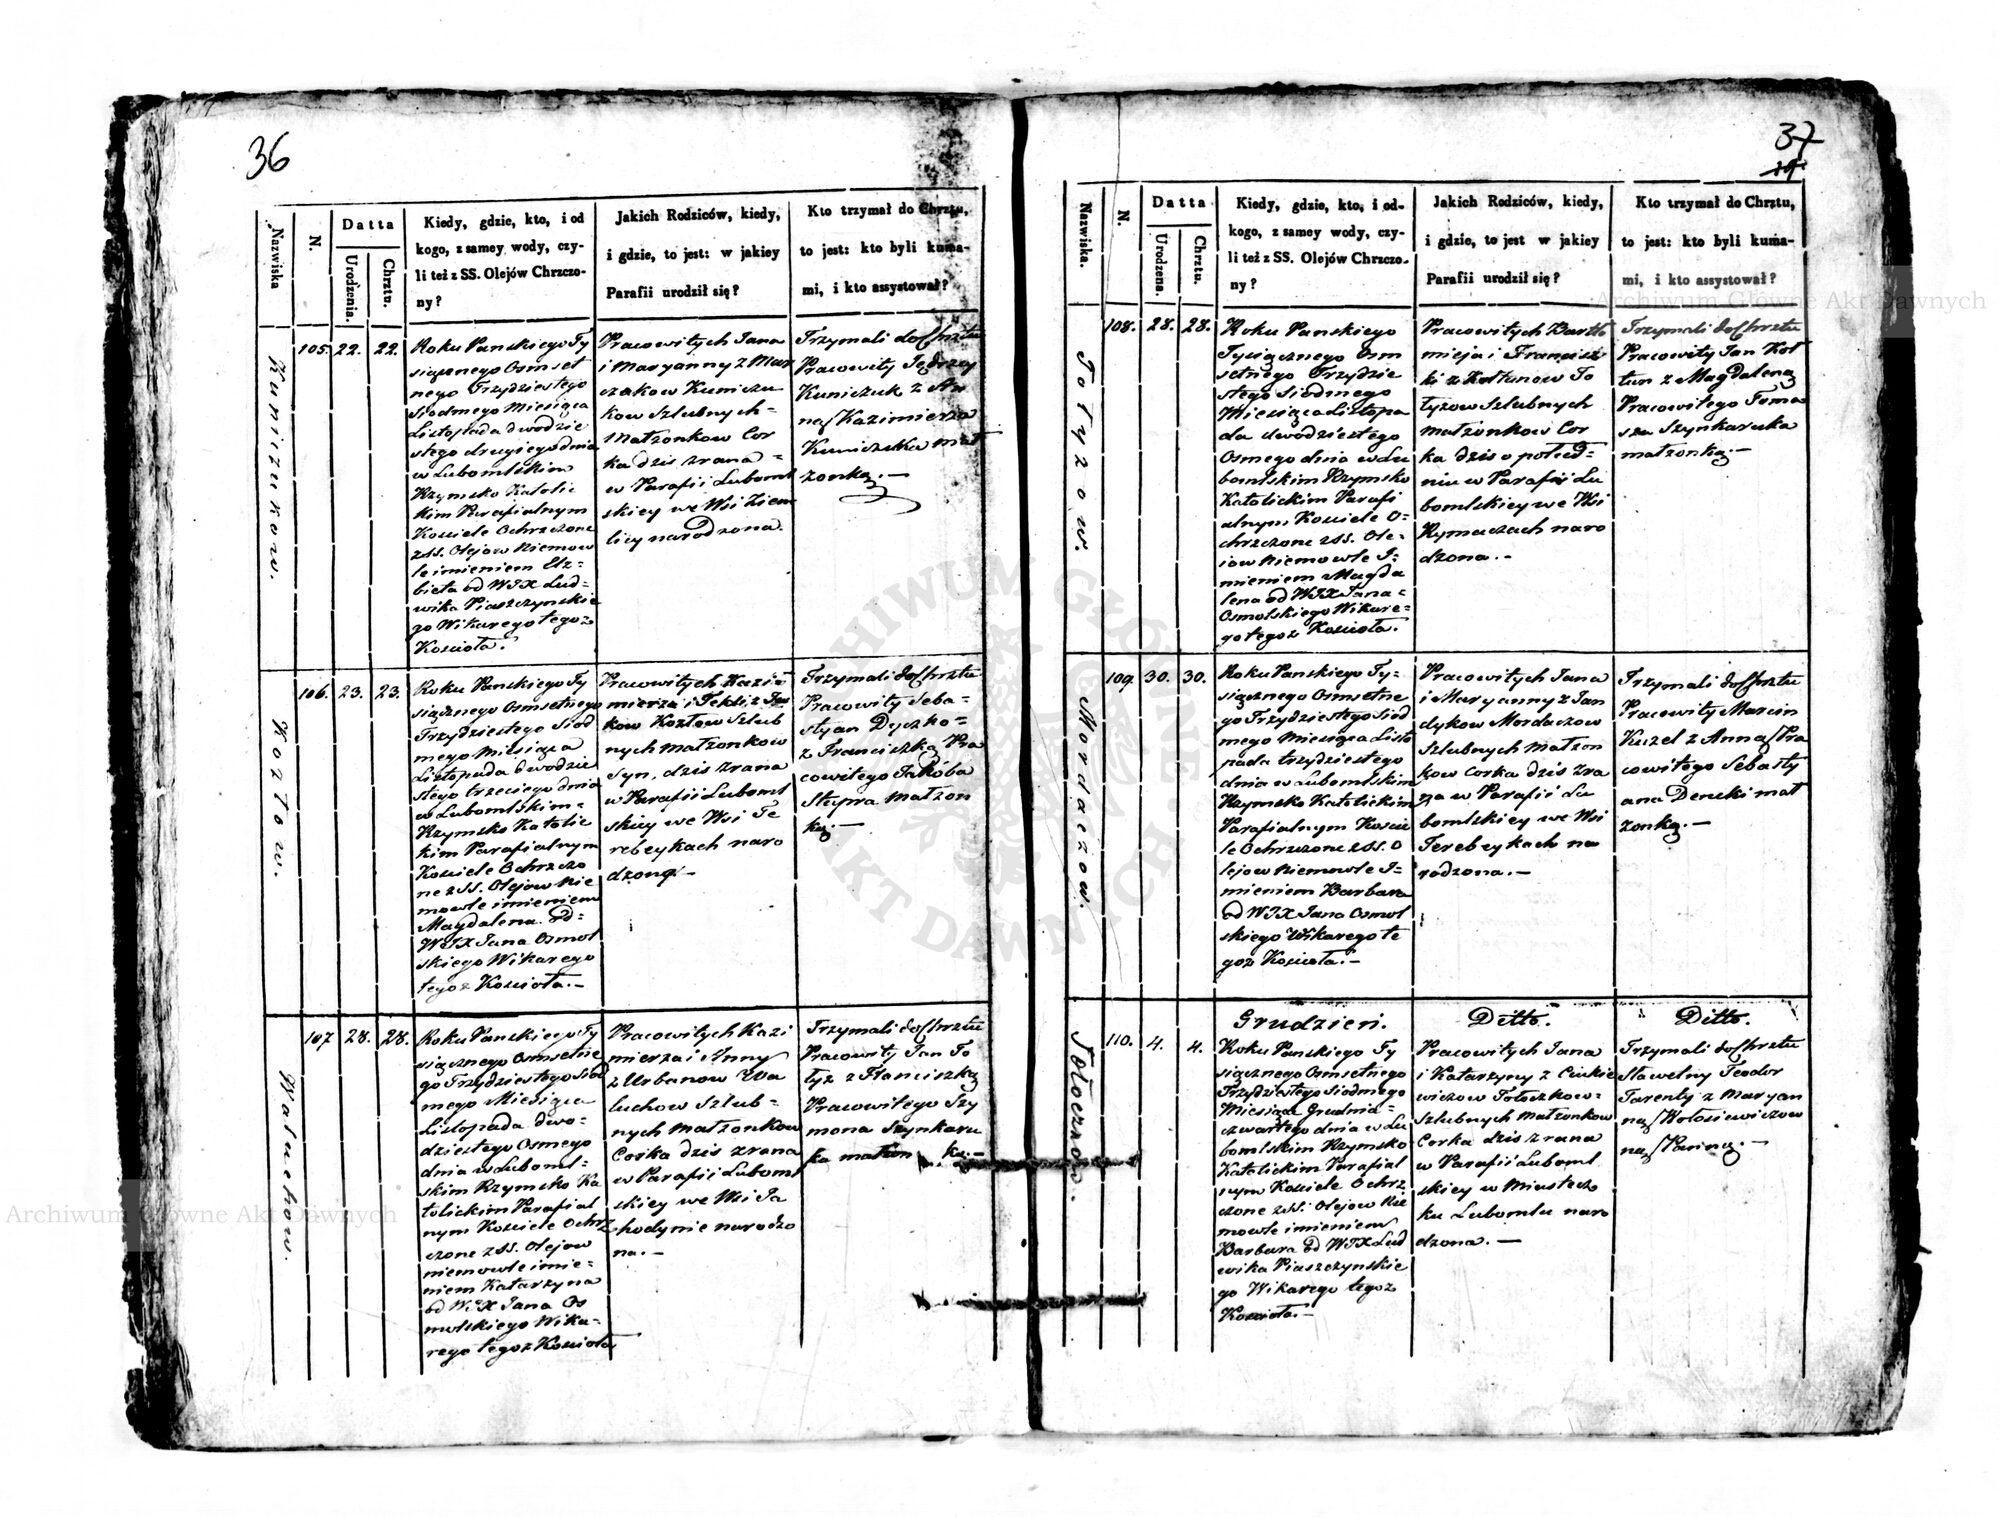 36
Nazwiska
N.
Datta
Urodzenia.
Chrztu.
Kiedy, gdzie, kto, i od
kogo, z samey wody, czy-
li też z SS. Olejów Chrzczo-
ny?
Jakich Rodziców, kiedy,
i gdzie, to jest: w jakiey
Parafii urodził się?
Kto trzymał do Chrztu,
to jest: kto byli kuma-
mi, i kto assystował?
Kuniczukow.
105.
22.
22.
Roku Panskiego Ty
siącznego Osmset
nego Trzydziestego
Siodmego Miesiąca
Listopada dwodzie
stego drugiego dnia
w Lubomlskim
Rzymsko Katolic
kim Parafialnym
Kosciele Ochrzczone
z SS. Olejow Niemow
le imieniem Elz-
bieta od WJX Lud-
wika Piaszczynskie
go Wikarego tegoz
Koscioła.
Pracowitych Jana
i Maryanny z Mar
czakow Kuniczu
kow Szlubnych-
Małzonkow Cor
ka dzis zrana-
w Parafii Luboml
skiey we Wsi
licy narodzona.
Trzymali do Chrztu
Pracowity Jędrzey
Kuniczuk z An
ną Kazimierza
Kuniczuka mał
zonką.-
Kozłow.
106.
23.
23.
Roku Panskiego Ty
siącznego Osmsetnego
Trzydziestego Siod
mego Miesiąca
Listopada dwodzie
stego trzeciego dnia
w Lubomlskim-
Rzymsko Katolic
kim Parafialnym
Kosciele Ochrzczo
ne z SS. Olejow Nie
mowle imieniem
Magdalena od-
WJX Jana Osmol
skiego Wikarego
tegoz Kosciola.-
Pracowitych Kazi
mierza i Tekli z
kow Kozłow Szlub
nych Małzonkow
Syn, dzis zrana
w Parafii Luboml
skiey we Wsi Te
rebeykach naro
dzony-
Trzymali do Chrztu
Pracowity Seba-
styan Dyczko-
z Franciszką Pra
cowitego Jakóba
Stypra Małzon
ką.-
Waluchow.
107
28.
28.
Roku Panskiego Ty
siącznego Osmsetne
go Trzydziestego Siod
mego Miesiąca
Listopada dwo-
dziestego Osmego
dnia w Luboml-
skim Rzymsko Ka
tolickim Parafial
nym Kosciele Ochrz
czone z SS. Olejow
niemowle imie-
niem Katarzyna
od WJX Jana Os
molskiego Wika-
rego tegoz Kosciola
Pracowitych Kazi
mierza i Anny
z Urbanow Wa
luchow Szlub-
nych Małzonkow
Corka dzis zrana
w Parafii Luboml
skiey we Wsi Ja
hodynie narodzo
na.-
Trzymali do Chrztu
Pracowity Jan To
tyz z Franciszką
Pracowitego Szy
mona Szynkaru
ka małzon ką.-
37
Nazwiska.
N.
Datta
Urodzena.
Chrztu.
Kiedy, gdzie, kto, i od-
kogo, z samey wody, czy-
li też z SS. Olejów Chrzczo-
ny?
Jakich Rodziców, kiedy,
i gdzie, to jest w jakiey
Parafii urodził się?
Kto trzymał do Chrztu,
to jest: kto byli kuma-
mi, i kto assystował?
Totyzow.
108.
28.
28.
Roku Panskiego
Tysiącznego Osm
setnego Trzydzie
stego Siódmego
Miesiąca Listopa
da dwódziestego
Osmego dnia w Lu
bomlskim Rzymsko
Katolickim Parafi
alnym Kosciele O-
chrzczone z SS. Ole-
jow Niemowle I-
mieniem Magda
lena od WJX Jana-
Osmolskiego Wikare-
go tegoz Kosciola.
Pracowitych Bartło
mieja i Francisz
ki z Kołtunow To
tyzow Szlubnych
Małzonkow Cor
ka dzis o połud-
niu w Parafii Lu
bomlskiey we Wsi
Rymaczach naro
dzona.-
Trzymali do Chrztu
Pracowity Jan Koł
tun z Magdaleną
Pracowitego Toma-
sza Szynkaruka
małzonką.-
Mordaczow.
109.
30.
30.
Roku Panskiego Ty-
siącznego Osmsetne
go Trzydziestego Siod
mego Miesiąca Listo
pada trzydziestego
dnia w Lubomlskim
Rzymsko Katolickim
Parafialnym Koscie
le Ochrzczone z SS. O
lejow Niemowle I-
mieniem Barbara
od WJX Jana Osmol
skiego Wikarego te
goz Kosciola.-
Pracowitych Jana
i Maryanny z Jan
dykow Mordaczow
Szlubnych Małzon
kow Corka dzis zra
na w Parafii Lu
bomlskiey we Wsi
Terebeykach na
rodzona.-
Trzymali do Chrztu
Pracowity Marcin
Kuzel z Anną Pra
cowitego Sebasty
ana Demcki mał
zonką.-
Tołoczkow.
110.
4.
4.
Grudzień.
Roku Panskiego Ty
siącznego Osmsetnego
Trzydziestego Siodmego
Miesiąca Grudnia-
czwartego dnia w Lu
bomlskim Rzymsko
Katolickim Parafial
nym Kosciele Ochrz
czone z SS. Olejow Nie
mowle imieniem
Barbara od WJX Lud
wika Piaszczynskie
go Wikarego tegoz
Kosciola.-
Ditto.
Pracowitych Jana
i Katarzyny z Cinkie
wiczow Tołoczkow-
Szlubnych Małzonkow
Corka dzis zrana
w Parafii Luboml
skiey w Miastecz
ku Lubomlu naro
dzona.-
Ditto.
Trzymali do Chrztu
Sławetny Teodor
Tarenty z Maryan
ną Wołosiewiczow
ną Panną.-
Archiwum Główne Akt Dawnych
Archiwum Główne Akt Dawnych
ARCHIWUM GŁÓWNE
AKT DAWNYCH